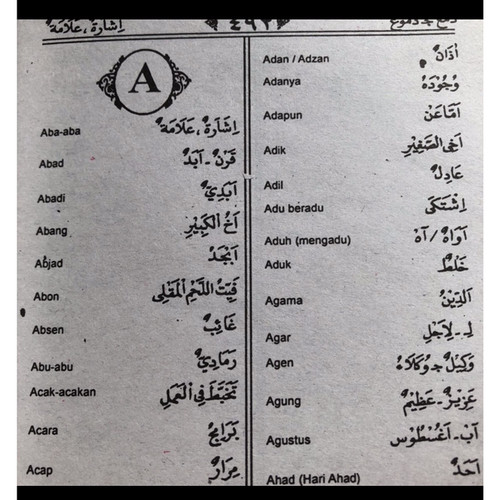 اِشَارَةٌ ، عَلَامَةٌ
٤٩٢
دمع ج دموع
A
Aba-aba اِشَارَةٌ ، عَلَامَةٌ
Abad قَرْنٌ - اَبَدٌ
Abadi اَبَدِيٌّ
Abang اَخُ الْكَبِيْرِ
Abjad اَبْجَدٌ
Abon فَتِيْتُ اللَّحْمِ الْمَقْلِى
Absen غَائِبٌ
Abu-abu رَمَادِيٌّ
Acak-acakan تَخَبَّطَ فِى الْعَمَلِ
Acara بَرَامِجُ
Acap مِرَارٌ
Adan / Adzan اَذَانٌ
Adanya وُجُوْدُهُ
Adapun اَمَّا عَنْ
Adik اَخِى الصَّغِيْرِ
Adil عَادِلٌ
Adu béradu اِشْتَكَى
Aduh (mengadu) آوَاهْ / آهْ
Aduk خَلْطٌ
Agama اَلدِّيْنُ
Agar لِـ - لِاَجْلِ
Agen وَكِيْلٌ ج وُكَلَاءُ
Agung عَزِيْزٌ - عَظِيْمٌ
Agustus آب - اَغُسْطُوْس
Ahad (Hari Ahad) اَحَدٌ